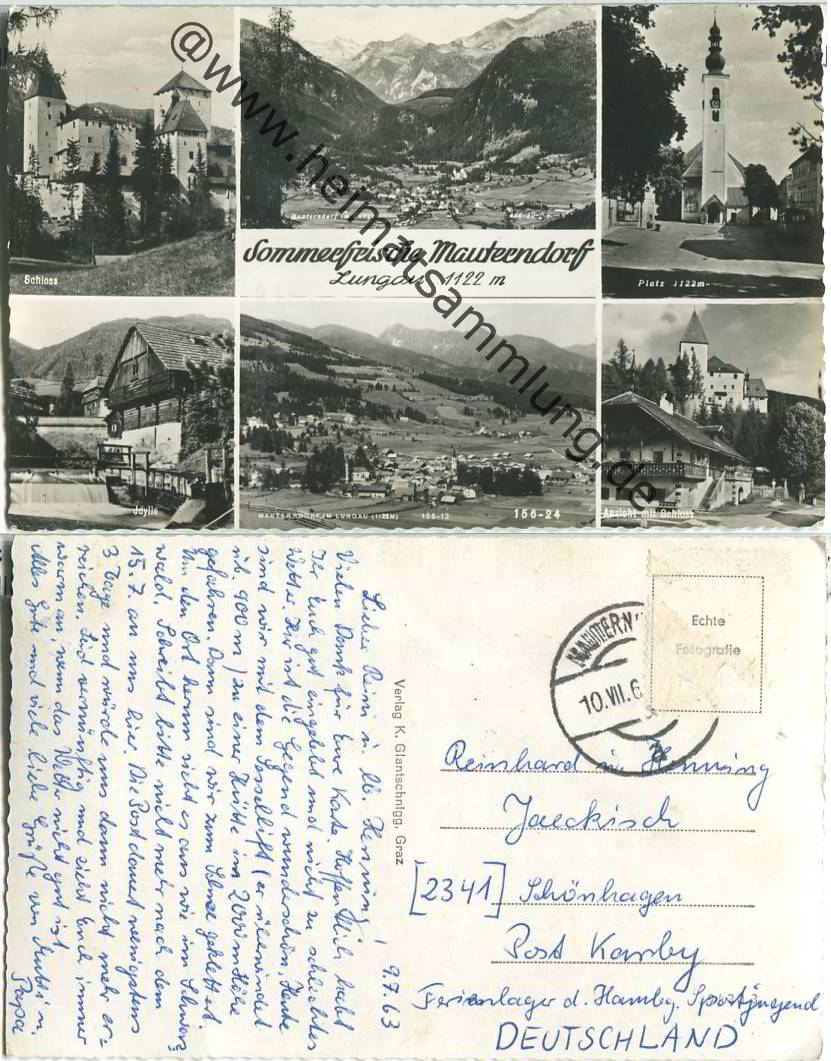 @www.heimatsammlung.de
Schloss
Mauterndorf im Lungau
Sommerfrische Mauterndorf
Lungau 1122 m
Platz 1122m-
Idylle
MAUTERNDORF IM LUNGAU (1122M) 156-12
156-24
Ansicht mit Schloss
9.7.63
Lieber Reini u. lb. Henning!
Vielen Dank für Eure Karte. Hoffentlich habt
Ihr Euch gut eingelebt und nicht zu schlechtes
Wetter. Hier ist die Gegend wunderschön. Heute
sind wir mit dem Sessellift (er überwindet
mit 900 m) zu einer Hütte in 2000 m Höhe
gefahren. Dann sind wir zum See geklettert.
Um den Ort herum sieht es aus wie im Schwarz
wald. Schreibt bitte nicht mehr nach dem
15.7 an uns hier. Die Post dauert wenigstens
3 Tage und würde uns dann nicht mehr er-
reichen. Seid vernünftig und zieht Euch immer
warm an, wenn das Wetter nicht gut ist
Alles Gute und viele liebe Grüße von Mutti u.
Papa
Verlag K. Glantschnigg, Graz
MAUTERN
10.VII.6
Echte
Fotografie
Reinhard u. Henning
Jaeckisch
[2341] Schönhagen
Post Karby
Ferienlager d. Hambg. Sportjugend
DEUTSCHLAND